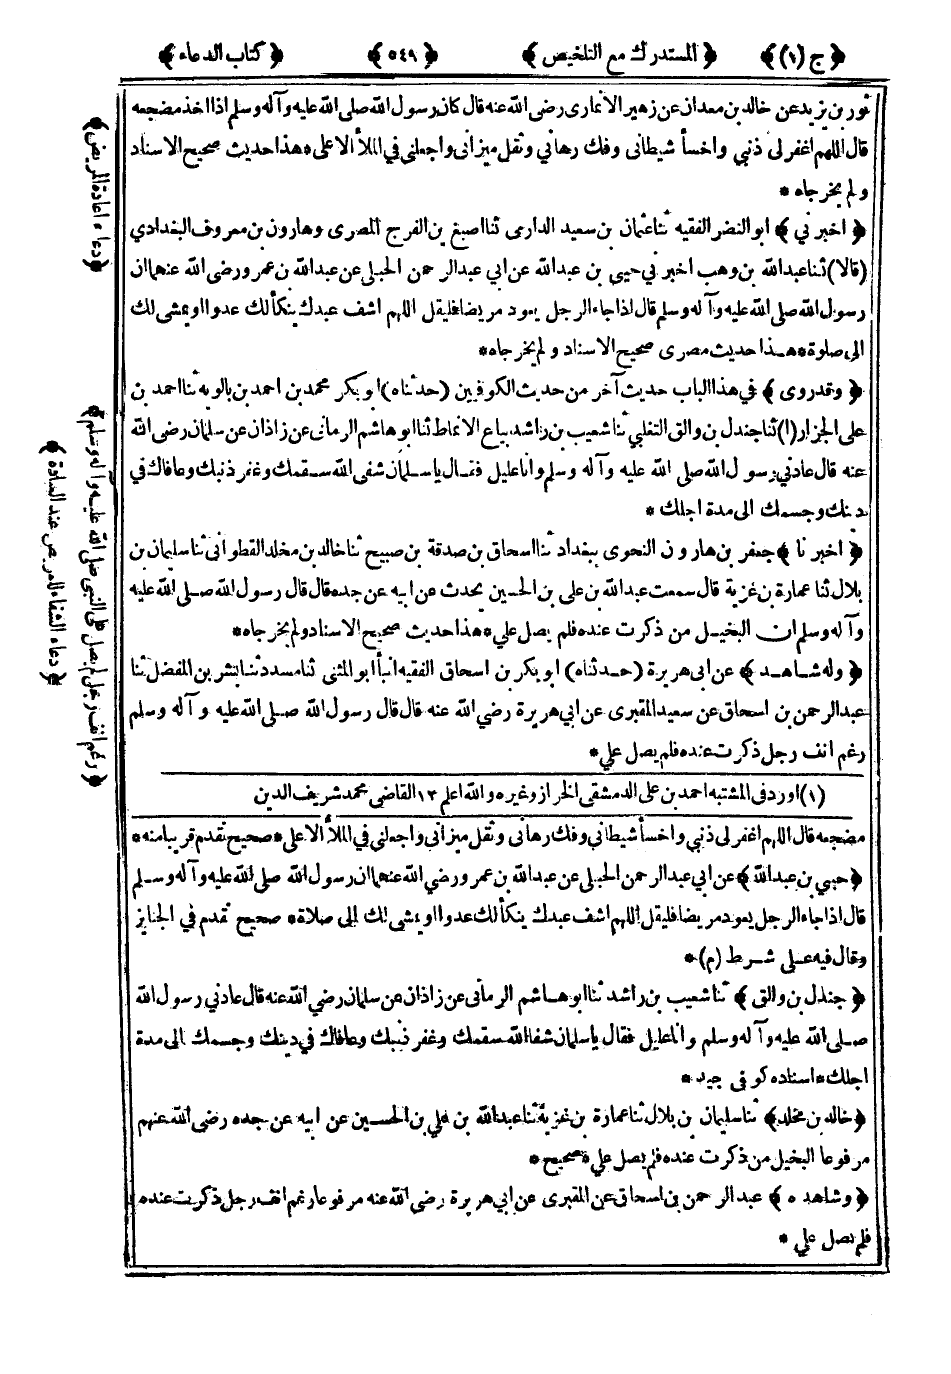 ﴿ ج (١) ﴾ ﴿ المستدرك مع التلخيص ﴾ ﴿ ٥٤٩ ﴾ ﴿ كتاب الدعاء ﴾
ثور بن يزيد عن خالد بن معدان عن زهير الانمارى رضى الله عنه قال كان رسول الله صلى الله عليه وآله وسلم اذا اخذ مضجعه
قال اللهم اغفر لى ذنبي واخسأ شيطانى وفك رهاني وثقل ميزانى واجعلنى في الملأ الاعلى * هذا حديث صحيح الاسناد
ولم يخرجاه *
﴿ اخبرني ﴾ ابو النضر الفقيه ثنا عثمان بن سعيد الدارى ثنا اصبغ بن الفرج المصرى وهارون بن معروف البغدادي
(قالا) ثنا عبد الله بن وهب اخبرني حيى بن عبد الله عن ابي عبد الرحمن الحبلى عن عبد الله بن عمرو رضى الله عنهما ان
رسول الله صلى الله عليه وآله وسلم قال اذا جاء الرجل يعود مريضا فليقل اللهم اشف عبدك ينكأ لك عدوا او يمشى لك
الى صلوة * هذا حديث مصرى صحيح الاسناد ولم يخرجاه *
﴿ وقد روى ﴾ في هذا الباب حديث آخر من حديث الكوفيين (حدثناه) ابو بكر محمد بن احمد بن بالويه ثنا احمد بن
على الجزار (١) ثنا جندل بن والق التغلبي ثنا شعيب بن راشد بياع الانماط ثنا ابو هاشم الرمانى عن زاذان عن سلمان رضى الله
عنه قال عادني رسول الله صلى الله عليه وآله وسلم وانا عليل فقال يا سلمان شفى الله سقمك وغفر ذنبك وعافاك في
دينك وجسمك الى مدة اجلك *
﴿ اخبرنا ﴾ جعفر بن هارون النحوى ببغداد ثنا اسحاق بن صدقة بن صبيح ثنا خالد بن مخلد القطوانى ثنا سليمان بن
بلال ثنا عمارة بن غزية قال سمعت عبد الله بن على بن الحسين يحدث عن ابيه عن جده قال قال رسول الله صلى الله عليه
وآله وسلم ان البخيل من ذكرت عنده فلم يصل علي * هذا حديث صحيح الاسناد ولم يخرجاه *
﴿ وله شاهد ﴾ عن ابى هريرة (حدثناه) ابو بكر بن اسحاق الفقيه انبأ ابو المثنى ثنا مسدد ثنا بشر بن المفضل ثنا
عبد الرحمن بن اسحاق عن سعيد المقبرى عن ابي هريرة رضي الله عنه قال قال رسول الله صلى الله عليه وآله وسلم
رغم انف رجل ذكرت عنده فلم يصل علي *
(١) اورد فى المشتبه احمد بن على الدمشقى الخراز وغيره والله اعلم ١٢ القاضى محمد شريف الدين
مضجعه قال اللهم اغفر لى ذنبي واخسأ شيطاني وفك رهانى وثقل ميزانى واجعلنى في الملأ الاعلى * صحيح تقدم قريبا منه *
﴿ حيي بن عبد الله ﴾ عن ابي عبد الرحمن الحبلى عن عبد الله بن عمرو رضى الله عنهما ان رسول الله صلى الله عليه وآله وسلم
قال اذا جاء الرجل يعود مريضا فليقل اللهم اشف عبدك ينكأ لك عدوا او يمشى لك الى صلاة * صحيح تقدم في الجنايز
وقال فيه على شرط (م) *
﴿ جندل بن والق ﴾ ثنا شعيب بن راشد ثنا ابو هاشم الرمانى عن زاذان عن سلمان رضي الله عنه قال عادني رسول الله
صلى الله عليه وآله وسلم وانا عليل فقال يا سلمان شفا الله سقمك وغفر ذنبك وعافاك في دينك وجسمك الى مدة
اجلك * اسناده كوفى جيد *
﴿ خالد بن مخلد ﴾ ثنا سليمان بن بلال ثنا عمارة بن غزية ثنا عبد الله بن على بن الحسين عن ابيه عن جده رضى الله عنهم
مرفوعا البخيل من ذكرت عنده فلم يصل علي * صحيح *
﴿ وشاهده ﴾ عبد الرحمن بن اسحاق عن المقبرى عن ابي هريرة رضى الله عنه مرفوعا رغم انف رجل ذكرت عنده
فلم يصل علي *
﴿ دعاء اعادة المريض ﴾
﴿ رغم انف رجل لم يصل على النبي صلى الله عليه وآله وسلم ﴾
﴿ دعاء الشفاء للمريض عند العيادة ﴾